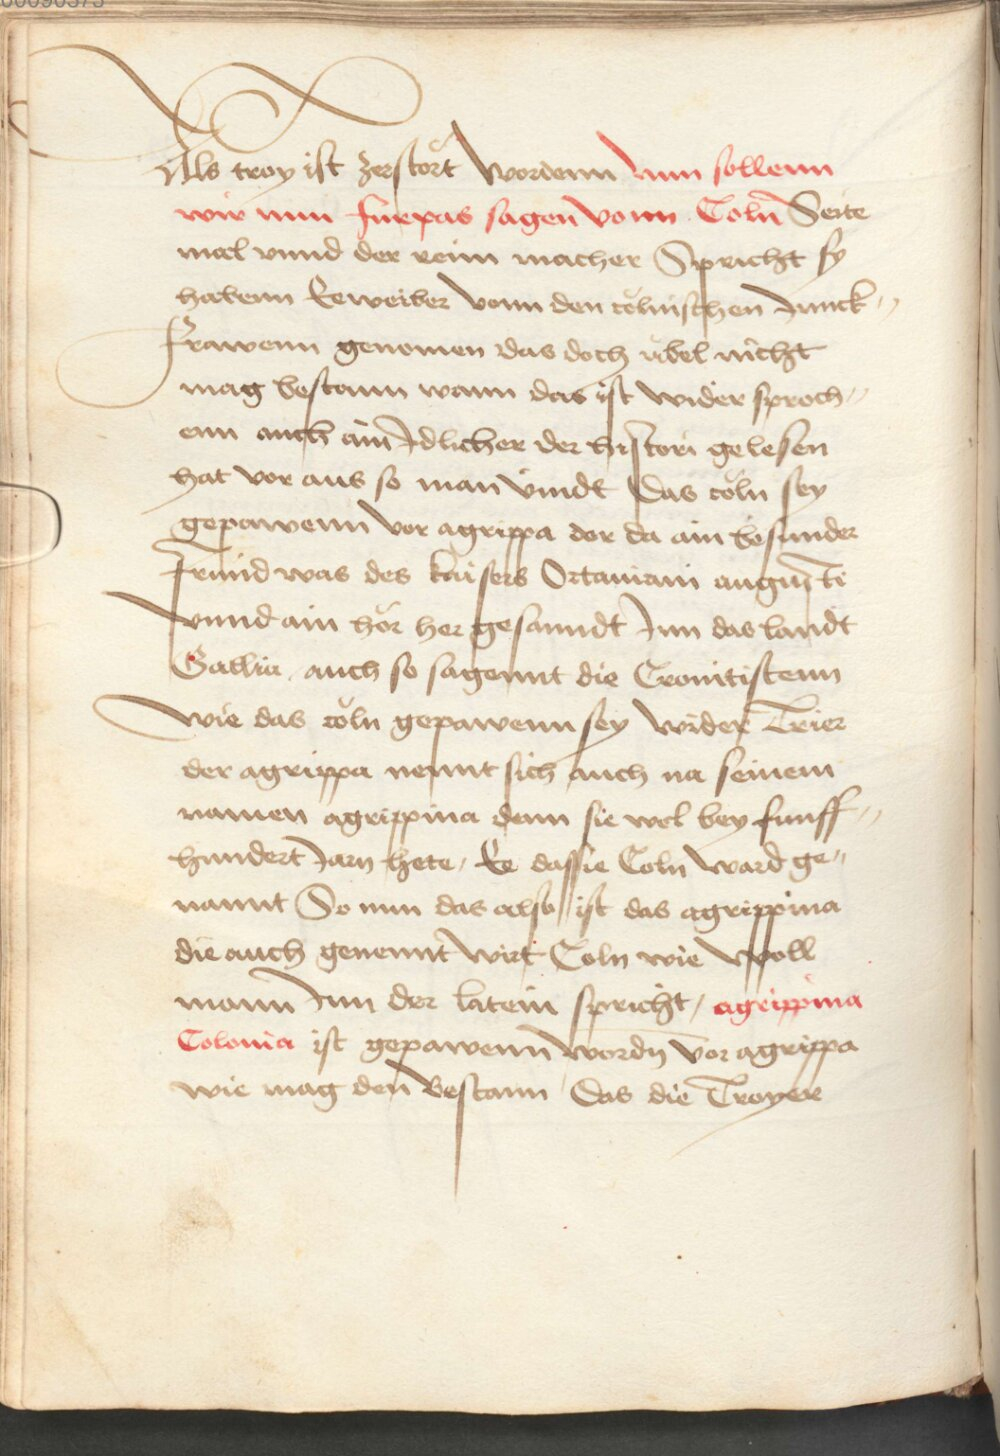 00090373
Als troy ist zerstört wordenn Nun sollenn
wir nun furpas sagen vonn Coln Seite
mal vnnd der reim macher Spricht sy
habenn Eeweiber vonn den cölnischen Junck〃
frawenn genomen das doch übel nicht
mag bestann wann das ist wider sproch〃
enn auch ain Idlicher der histori gelesen
hat vor aus so man vindt Das cöln sey
gepawenn vor agrippa der da ain besunder
freund was des kaisers Octauiani augusti
vnnd ain hör her gesanndt Inn das landt
Gallia auch so sagennt die Cronitistenn
wie das cöln gepawenn sey wider Trier
der agrippa nennt sich auch na seinem
namen agrippina denn sie wol bey funff〃
hundert Jarn hete / Ee dassie Coln ward ge〃
nannt So nun das also ist das agrippina
die auch genennt wirt Coln wie woll
mann Inn der latein spricht / agrippina
Colonia ist gepawenn wordn vor agrippa
wie mag den bestann Das die Troyer